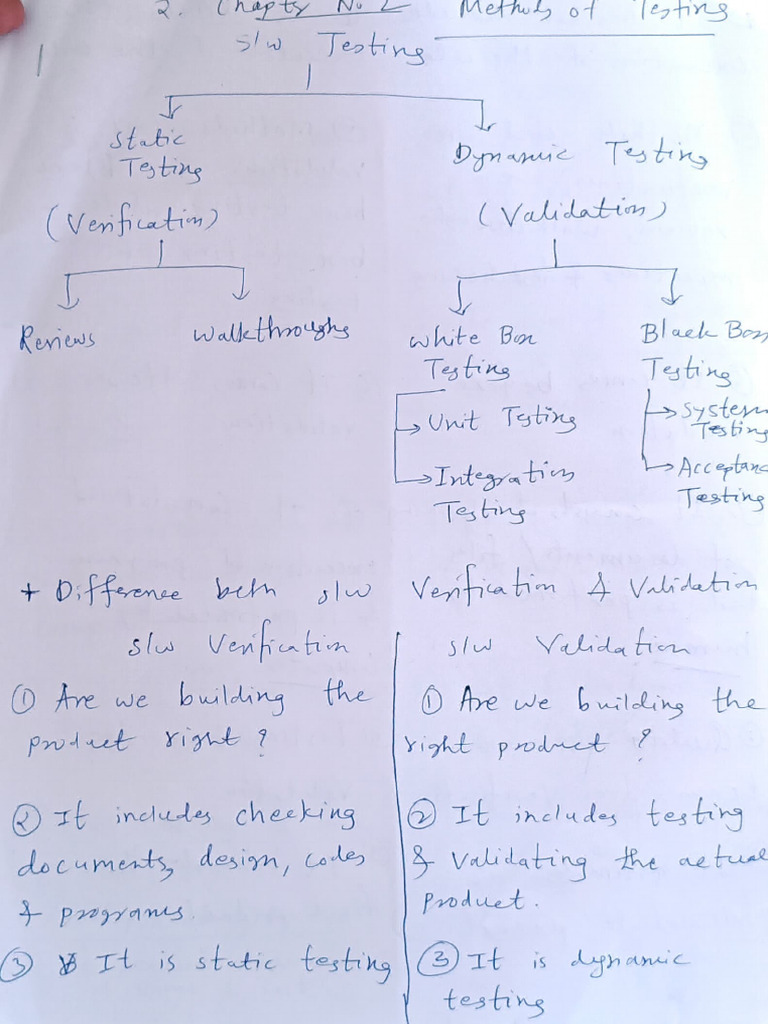 2. Chapter No 2 Methods of Testing
S/w Testing
Static Testing
Dynamic Testing
(Verification)
(Validation)
Reviews
Walkthroughs
White Box Testing
Black Box Testing
Unit Testing
System Testing
Integration Testing
Acceptanc Testing
+ Difference betn s/w Verification & Validation
s/w Verification
s/w Validation
① Are we building the
product right ?
② It includes checking
documents, design, codes
& programs.
③ It is static testing
① Are we building the
right product ?
② It includes testing
& validating the actual
product.
③ It is dynamic
testing